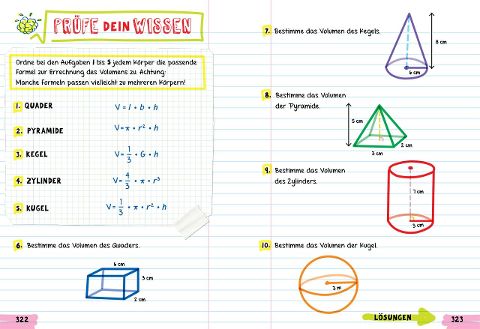 PRÜFE DEIN WISSEN
Ordne bei den Aufgaben 1 bis 5 jedem Körper die passende
Formel zur Errechnung des Volumens zu Achtung:
Manche Formeln passen vielleicht zu mehreren Körpern!
1. QUADER
V = l • b • h
2. PYRAMIDE
V = π • r² • h
3. KEGEL
V = 1/3 • G • h
4. ZYLINDER
V = 4/3 • π • r³
5. KUGEL
V = 1/3 • π • r² • h
6. Bestimme das Volumen des Quaders.
6 cm
3 cm
2 cm
322
7. Bestimme das Volumen des Kegels.
8 cm
6 cm
8. Bestimme das Volumen
der Pyramide.
5 cm
2 cm
3 cm
9. Bestimme das Volumen
des Zylinders.
7 cm
3 cm
10. Bestimme das Volumen der Kugel.
3 m
LÖSUNGEN
323